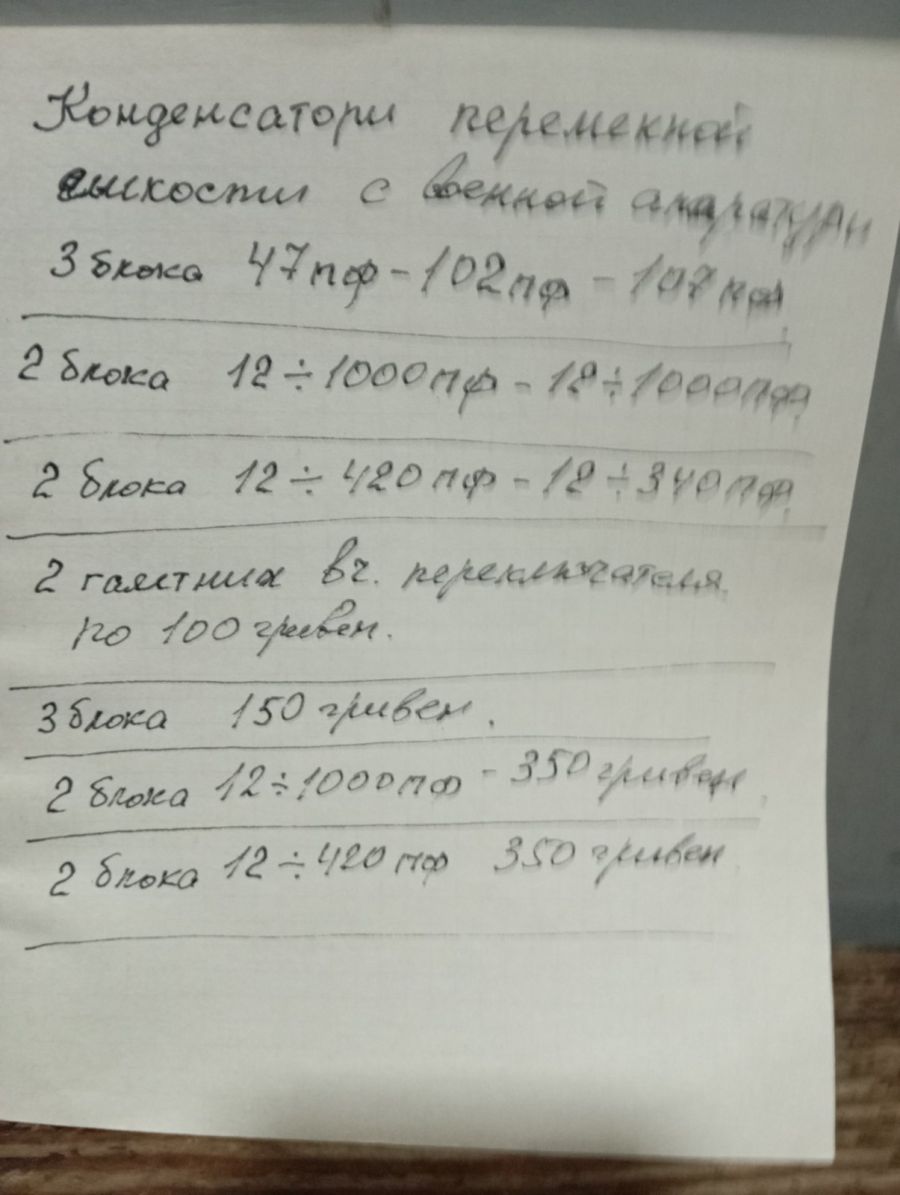 Конденсатори переменной
емкости с военной апаратури
3 блока 47пф - 102пф - 107пф
2 блока 12÷1000пф - 12÷1000пф
2 блока 12÷420пф - 12÷340пф
2 галетних вч. переключателя
по 100 гривен.
3 блока 150 гривен.
2 блока 12÷1000пф - 350 гривен
2 блока 12÷420пф 350 гривен